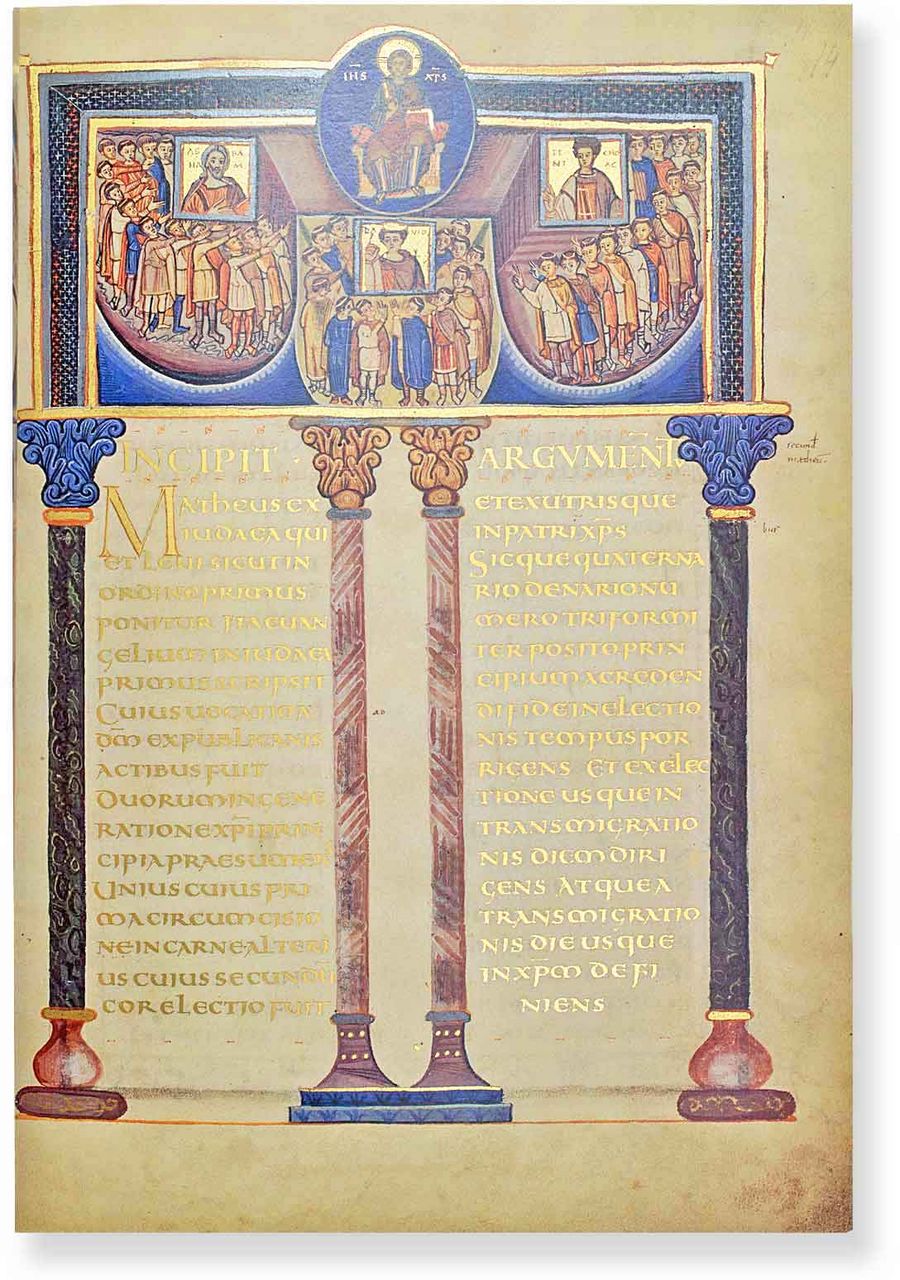 IHS XPS
INCIPIT ·
MATHEUS EX
IUDAEA QUI
ET LEUI SICUT IN
ORDINE PRIMUS
PONITUR ITA EUAN
GELIUM IN IUDAEA
PRIMUS SCRIPSIT
CUIUS UOCATIO A
DM̅ EX PUBLICANIS
ACTIBUS FUIT
DUORUM IN GENE
RATIONE XP̅I PRIN
CIPIA PRAESUMENS
UNIUS CUIUS PRI
MA CIRCUMCISIO
NE IN CARNE ALTERI
US CUIUS SECUNDU̅
COR ELECTIO FUIT
ARGVMENT
ET EX UTRISQUE
IN PATRI XP̅S
SICQUE QUATERNA
RIO DENARIO NU
MERO TRIFORMI
TER POSITO PRIN
CIPIUM A CREDEN
DI FIDE IN ELECTIO
NIS TEMPUS POR
RIGENS ET EX ELEC
TIONE USQUE IN
TRANSMIGRATIO
NIS DIEM DIRI
GENS ATQUE A
TRANSMIGRATIO
NIS DIE USQUE
IN XP̅M DEFI
NIENS